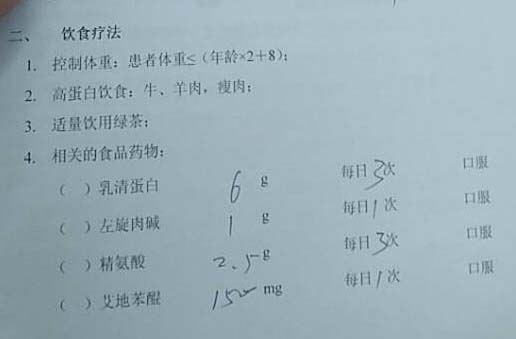 二、 饮食疗法
1. 控制体重：患者体重≤（年龄×2＋8）；
2. 高蛋白饮食：牛、羊肉，瘦肉；
3. 适量饮用绿茶；
4. 相关的食品药物：
（ ）乳清蛋白 6 g 每日3次 口服
（ ）左旋肉碱 1 g 每日1次 口服
（ ）精氨酸 2.5 g 每日3次 口服
（ ）艾地苯醌 150 mg 每日1次 口服